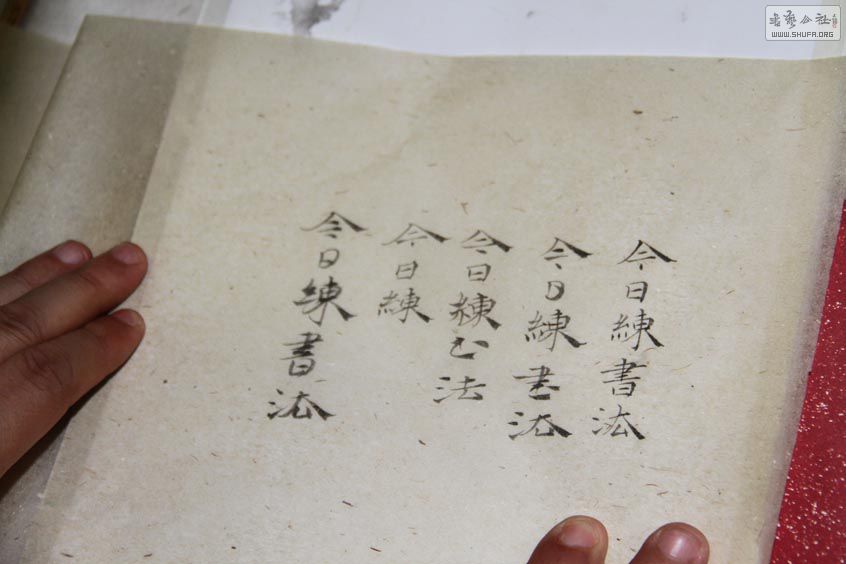 今日練書法
今日練書法
今日練书法
今日練
今日練書法
书艺公社
WWW.SHUFA.ORG